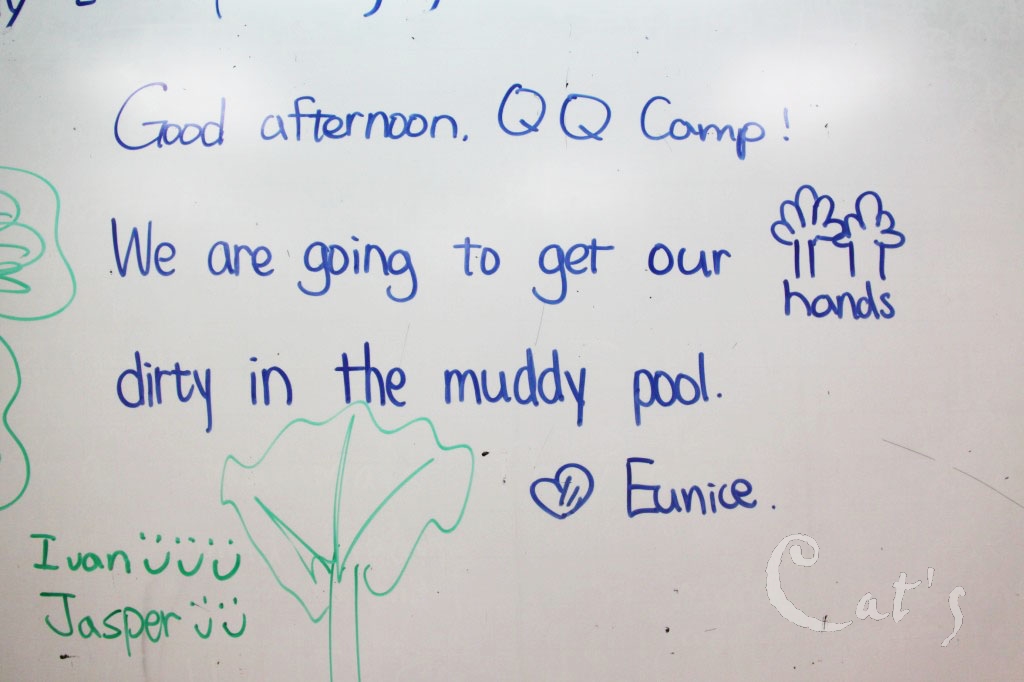 Good afternoon. QQ Camp!
We are going to get our hands
dirty in the muddy pool.
Eunice.
Ivan
Jasper
Cat's